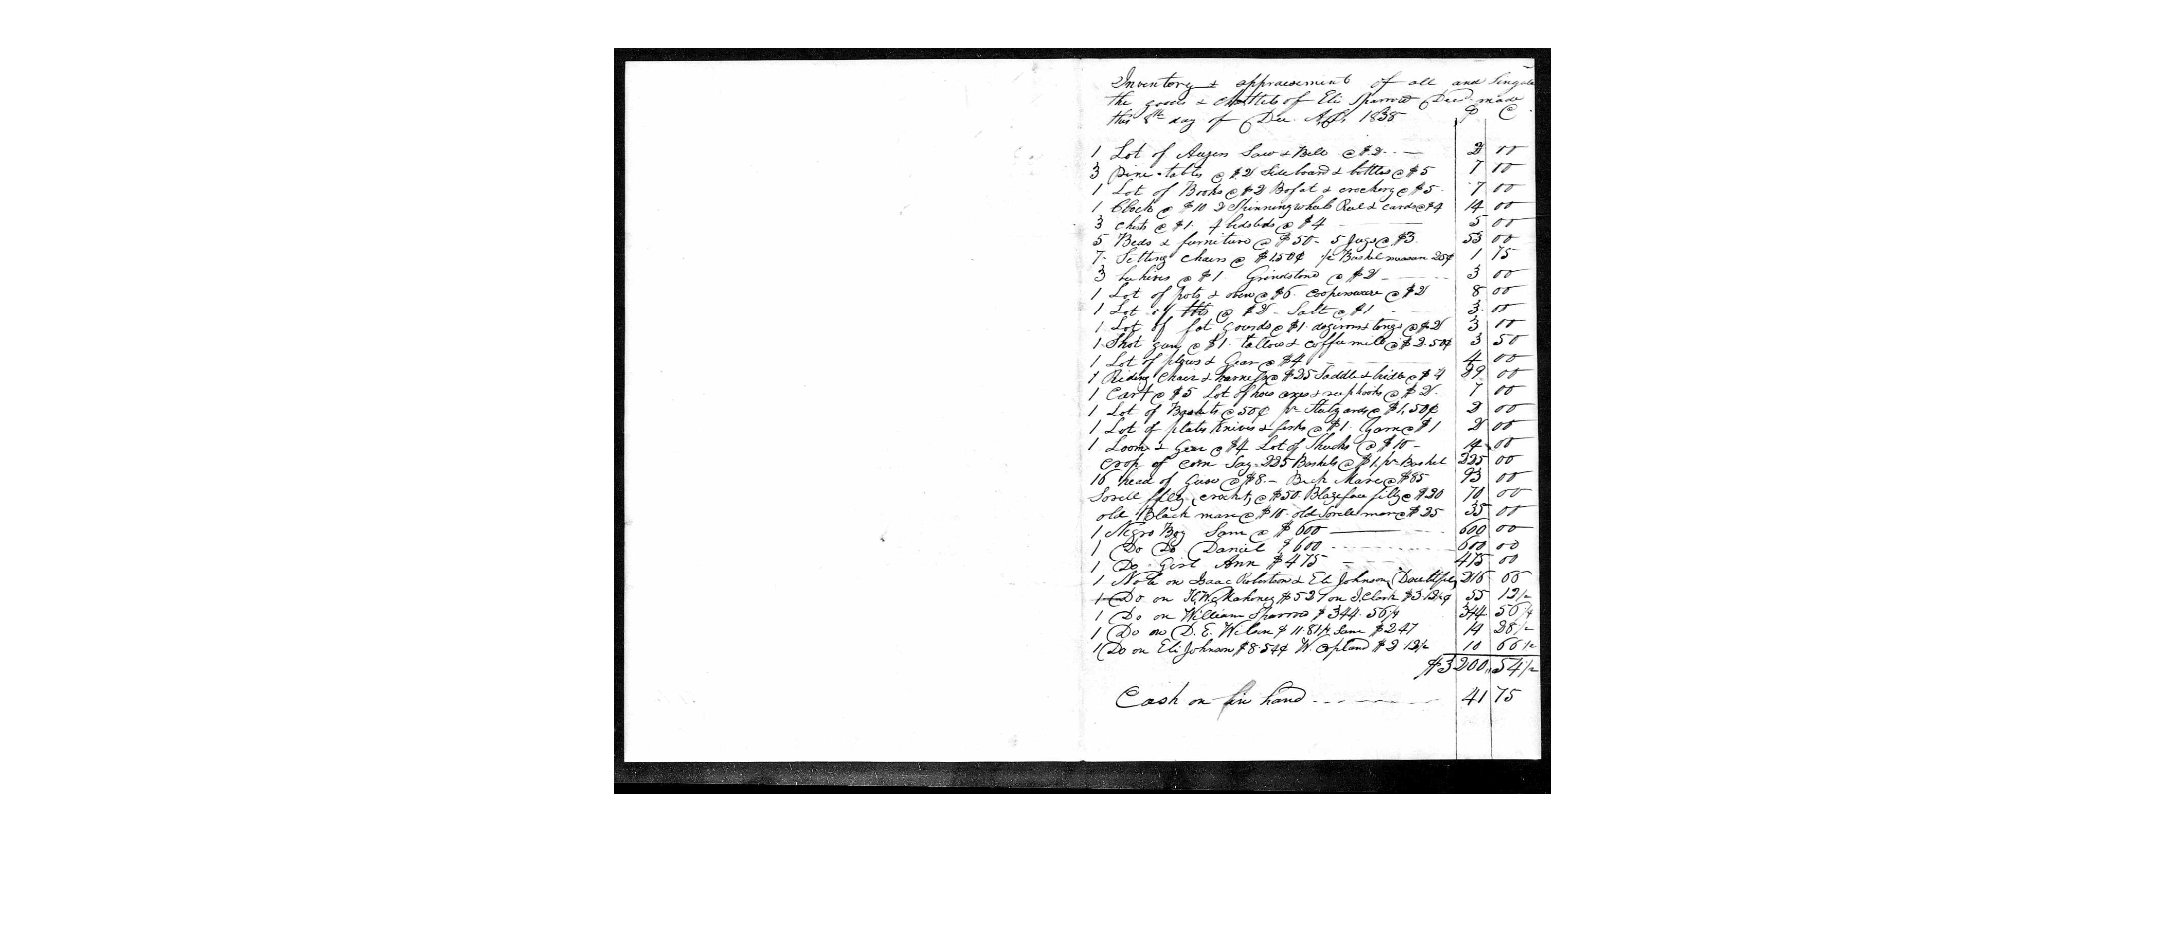 Inventory & appraisement of all and Singular
the goods & chattles of Eli Sparrow Decd made
this 8th day of Dec. A.D. 1838 D C
1 Lot of Augers Saw & Bell @ $2 2 00
3 Pine tables @ $2 Sideboard & bottles @ $5 7 00
1 Lot of Books @ $2 Bofat & crockery @ $5 7 00
1 Clock @ $10 2 Spinning wheels Reel & cards @ $4 14 00
3 chests @ $1 4 bedsteds @ $4 5 00
5 Beds & furniture @ $50 5 Jugs @ $3 53 00
7 Setting chairs @ $1.50¢ 1/2 Bushel measure 25¢ 1 75
3 bee hives @ $1 Grindstone @ $2 3 00
1 Lot of pots & oven @ $6 cooperware @ $2 8 00
1 Lot of @ $2 Salt @ $1 3 00
1 Lot of fat gourds @ $1 dogirons & tongs @ $2 3 00
1 Shot gun @ $1 tallow & coffee mill @ $2.50¢ 3 50
1 Lot of plows & Gear @ $4 4 00
1 Riding Chair & harness @ $25 Saddle & bridle @ $4 29 00
1 Cart @ $5 Lot of hoes axes & reephooks @ $2 7 00
1 Lot of Baskets @ 50¢ pr Stilyards @ $1,50¢ 2 00
1 Lot of plates Knives & forks @ $1 Yarn @ $1 2 00
1 Loom & Gear @ $4 Lot of Shucks @ $10 14 00
Crop of corn Say 225 Bushels @ $1 pr Bushel 225 00
16 head of Geese @ $8 Mare @ $85 93 00
Sorell filly @ $50 Blazeface filly @ $20 70 00
old Black mare @ $10 old Sorell mare @ $25 35 00
1 Negro Boy Sam @ $600 600 00
1 Do Do Daniel $600 600 00
1 Do Girl Ann $475 475 00
1 Note on Isaac Robertson & Eli Johnson (Doubtful) 216 00
1 Do on Mahoney $52 on J. Clark $3 12½¢ 55 12½
1 Do on William Sparrow $344 56¼ 344 56¼
1 Do on D. E. Wilson $11.81¼ Same $2.47 14 28½
1 Do on Eli Johnson $8.54¢ W. Copland $2 12½ 10 66½
$3200,54½
Cash on hand 41 75